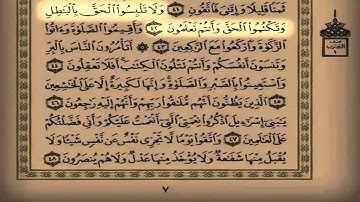 ثَمَنًا قَلِيلًا وَإِيَّٰىَ فَٱتَّقُونِ ٤١ وَلَا تَلْبِسُوا۟ ٱلْحَقَّ بِٱلْبَٰطِلِ
وَتَكْتُمُوا۟ ٱلْحَقَّ وَأَنتُمْ تَعْلَمُونَ ٤٢ وَأَقِيمُوا۟ ٱلصَّلَوٰةَ وَءَاتُوا۟
ٱلزَّكَوٰةَ وَٱرْكَعُوا۟ مَعَ ٱلرَّٰكِعِينَ ٤٣ أَتَأْمُرُونَ ٱلنَّاسَ بِٱلْبِرِّ
وَتَنسَوْنَ أَنفُسَكُمْ وَأَنتُمْ تَتْلُونَ ٱلْكِتَٰبَ أَفَلَا تَعْقِلُونَ ٤٤
وَٱسْتَعِينُوا۟ بِٱلصَّبْرِ وَٱلصَّلَوٰةِ وَإِنَّهَا لَكَبِيرَةٌ إِلَّا عَلَى ٱلْخَٰشِعِينَ
٤٥ ٱلَّذِينَ يَظُنُّونَ أَنَّهُم مُّلَٰقُوا۟ رَبِّهِمْ وَأَنَّهُمْ إِلَيْهِ رَٰجِعُونَ ٤٦
يَٰبَنِىٓ إِسْرَٰٓءِيلَ ٱذْكُرُوا۟ نِعْمَتِىَ ٱلَّتِىٓ أَنْعَمْتُ عَلَيْكُمْ وَأَنِّى فَضَّلْتُكُمْ
عَلَى ٱلْعَٰلَمِينَ ٤٧ وَٱتَّقُوا۟ يَوْمًا لَّا تَجْزِى نَفْسٌ عَن نَّفْسٍ شَيْـًٔا وَلَا
يُقْبَلُ مِنْهَا شَفَٰعَةٌ وَلَا يُؤْخَذُ مِنْهَا عَدْلٌ وَلَا هُمْ يُنصَرُونَ ٤٨
٧